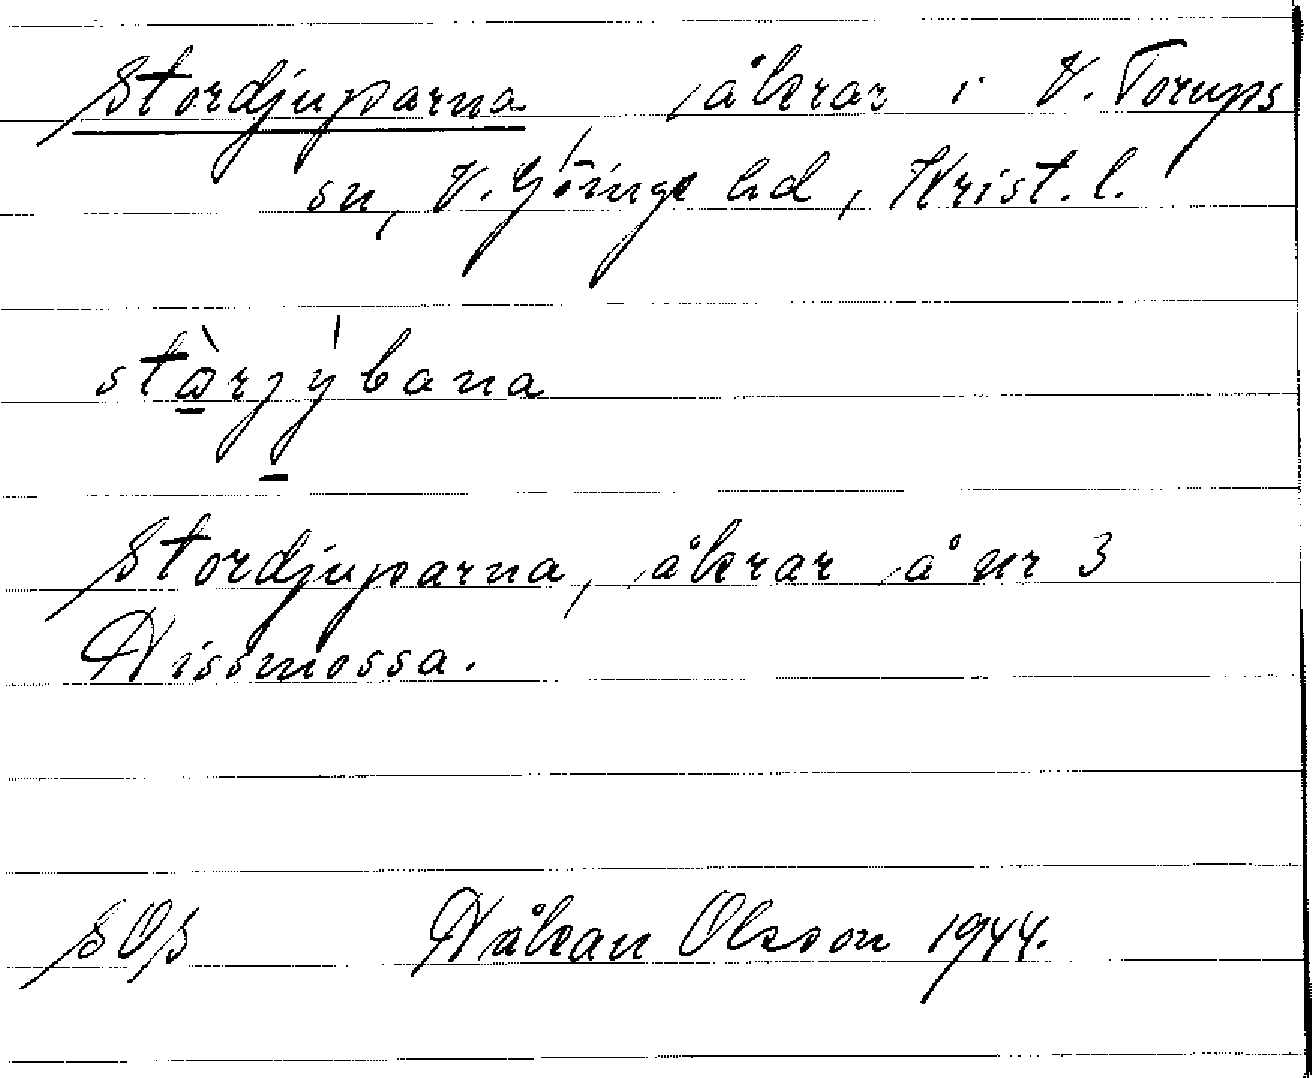 Stordjuparna åkrar i V. Torups
sn, V. Göinge hd, Krist. l.
stàrjýbana
Stordjuparna, åkrar å nr 3
Nissmossa.
SOS Håkan Olsson 1944.